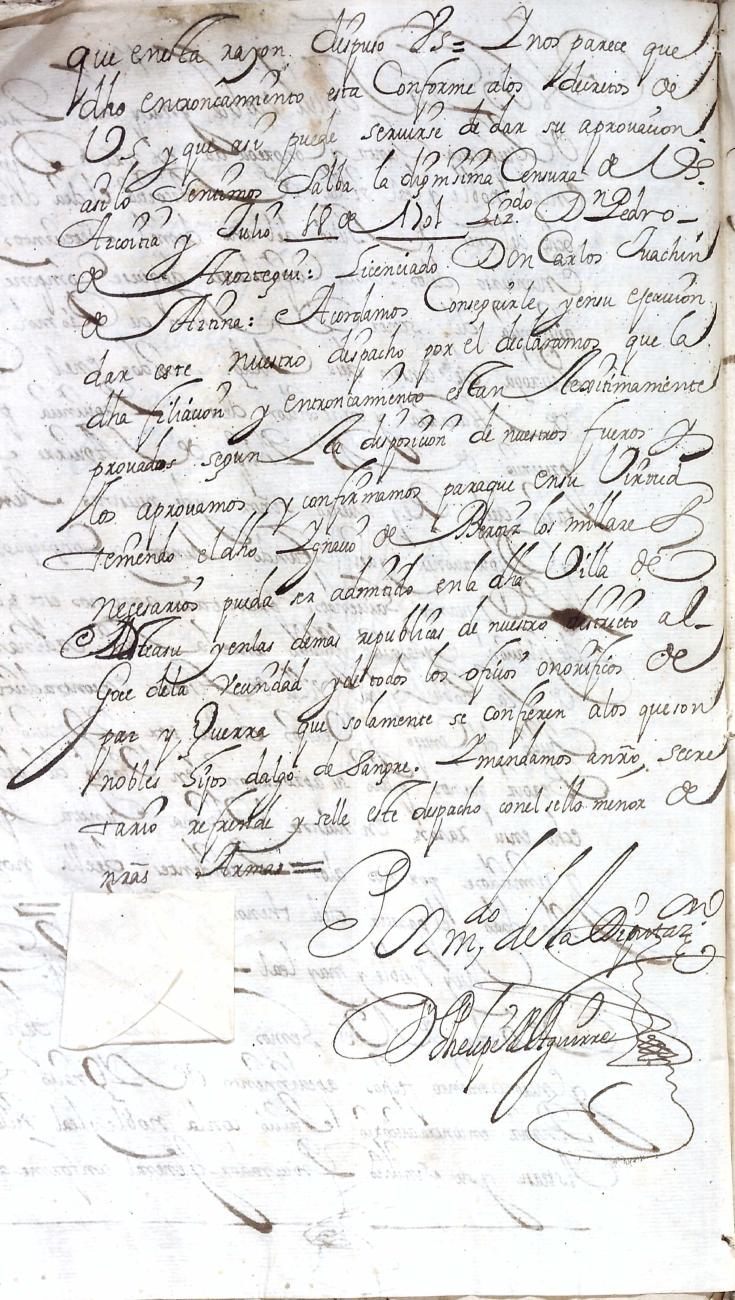 que enesta razon. dispuso VS = Y nos parece que
dho entroncamiento esta Conforme alos decretos de
VS y que asi puede servirse de dar su aprovacion
asilo sentimos Salba la dignisima Censura de VS.
Azcoitia y Julio 18 de 1701 Lizdo Dn Pedro
de Aroztegui: Licenciado Don Carlos Juachin
de Artina: Acordamos Conseguirle, y ensu ejecucion
dar este nuestro despacho por el declaramos que la
dha filiacion y entroncamiento estan lexitimamente
provados segun la disposicion de nuestros fueros y
los aprovamos, y confirmamos paraque ensu Virtud
teniendo eldho Ygnacio de Beroiz los millares
necesarios pueda ser admitido enla dha Villa de
Asteasu yenlas demas republicas de nuestro districto al
Goce dela Vecindad y de todos los oficios onorificos de
paz y Guerra que solamente se confieren alos queson
nobles hijos dalgo de Sangre. Ymandamos anro. secre
tario refrende y selle este despacho conel sello menor de
nras Armas =
Por mdo de la Diputaz.on
D Phelipe de Aguirre